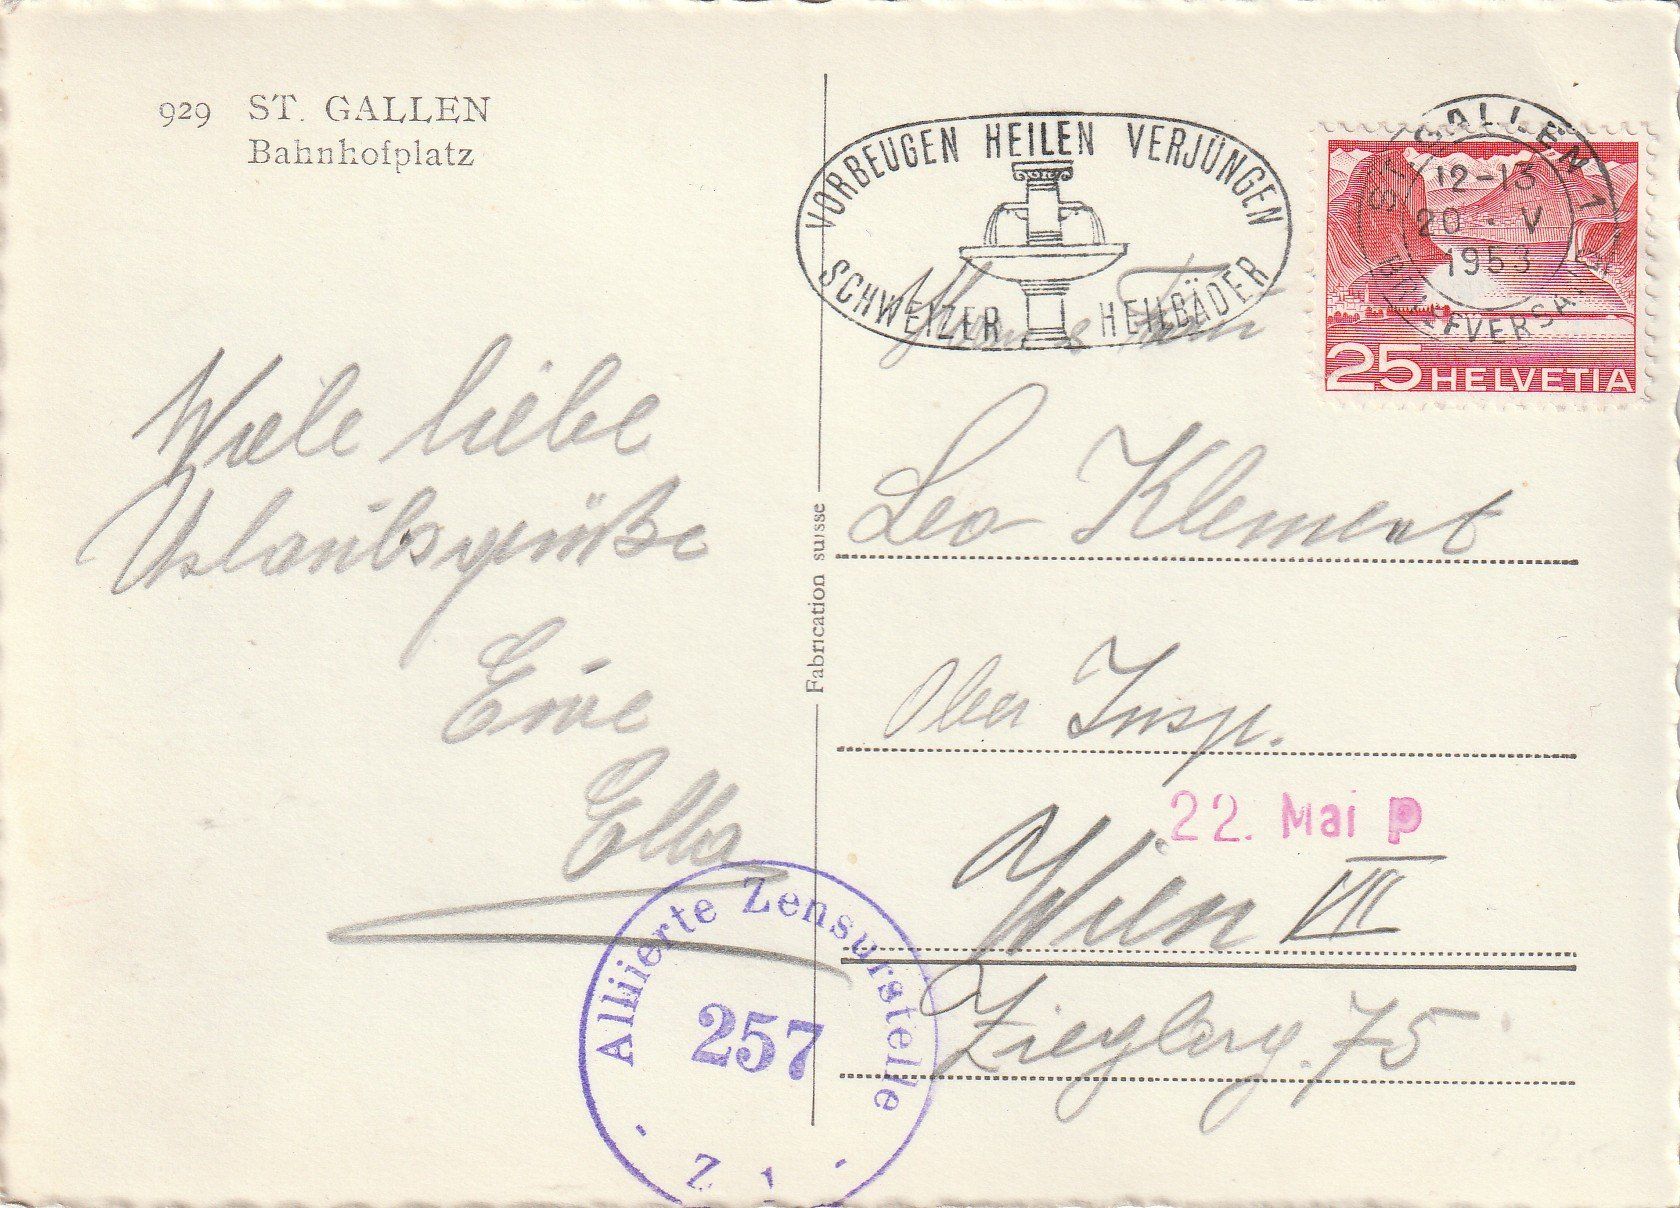 929 ST. GALLEN
Bahnhofplatz
Viele liebe
Urlaubsgrüße
Eure
Ella
Fabrication suisse
VORBEUGEN HEILEN VERJÜNGEN
SCHWEIZER HEILBÄDER
ST. GALLEN 1
12-13
20. V
1953
BRIEFVERSAND
25 HELVETIA
Leo Klement
Ober Insp.
22. Mai P
Wien VII
Zieglerg. 75
Alliierte Zensurstelle
257
Z 1